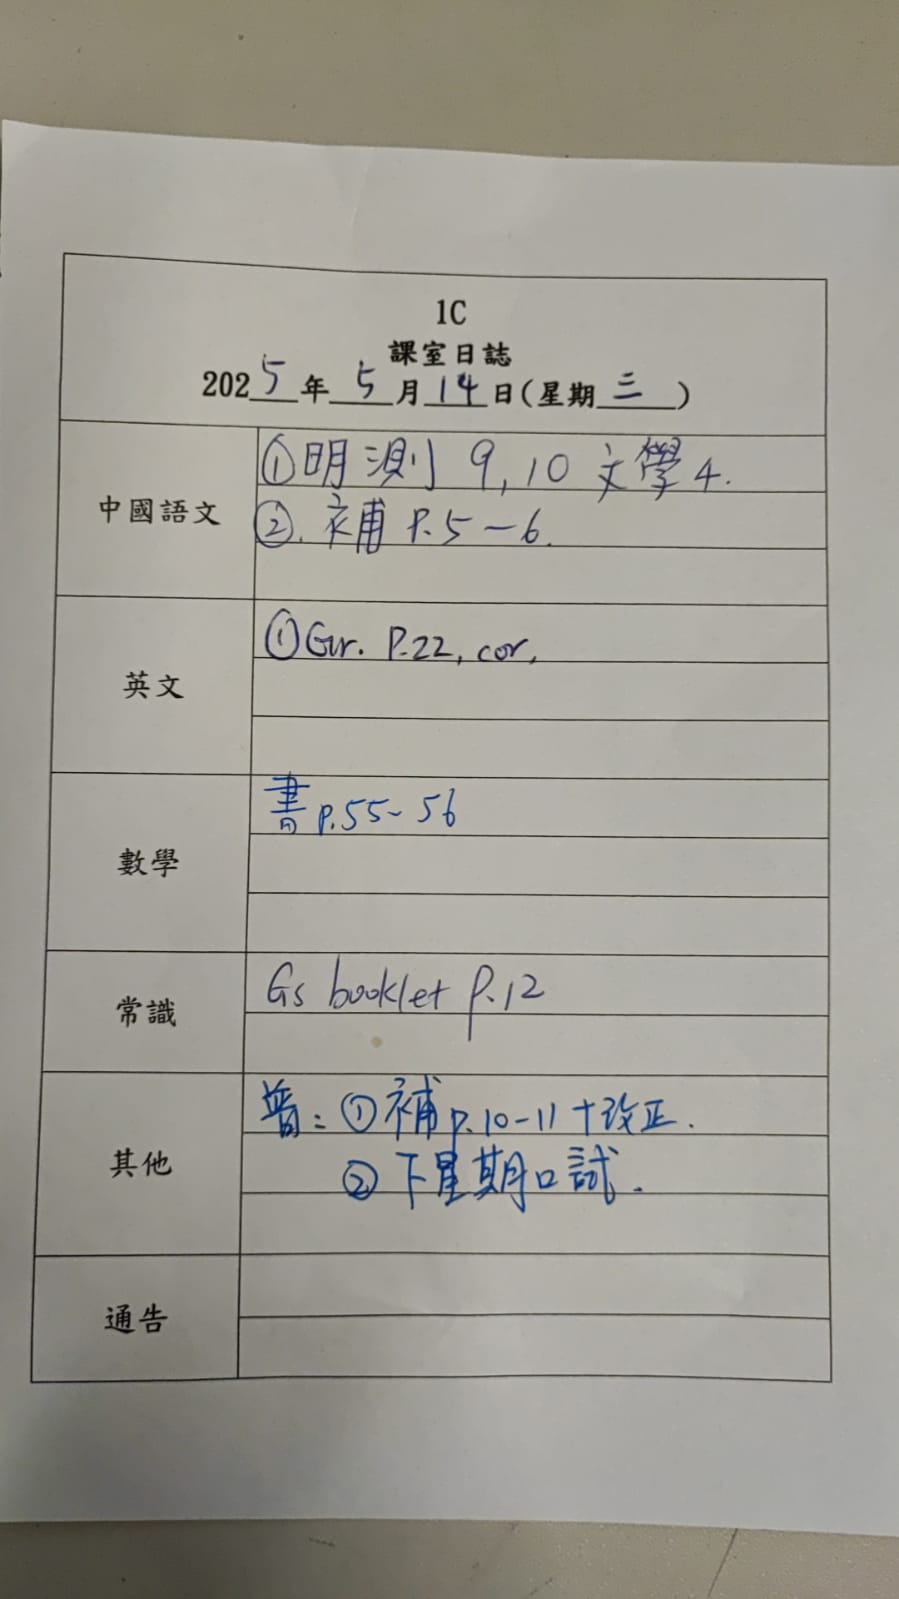 1C
課室日誌
2025年5月14日(星期三)
中國語文
①明測 9,10 文學4.
②. 補 P.5-6.
英文
①Gr. P.22, cor,
數學
書 p.55~56
常識
Gs booklet P.12
其他
普：①補 p.10-11+改正.
②下星期口試.
通告